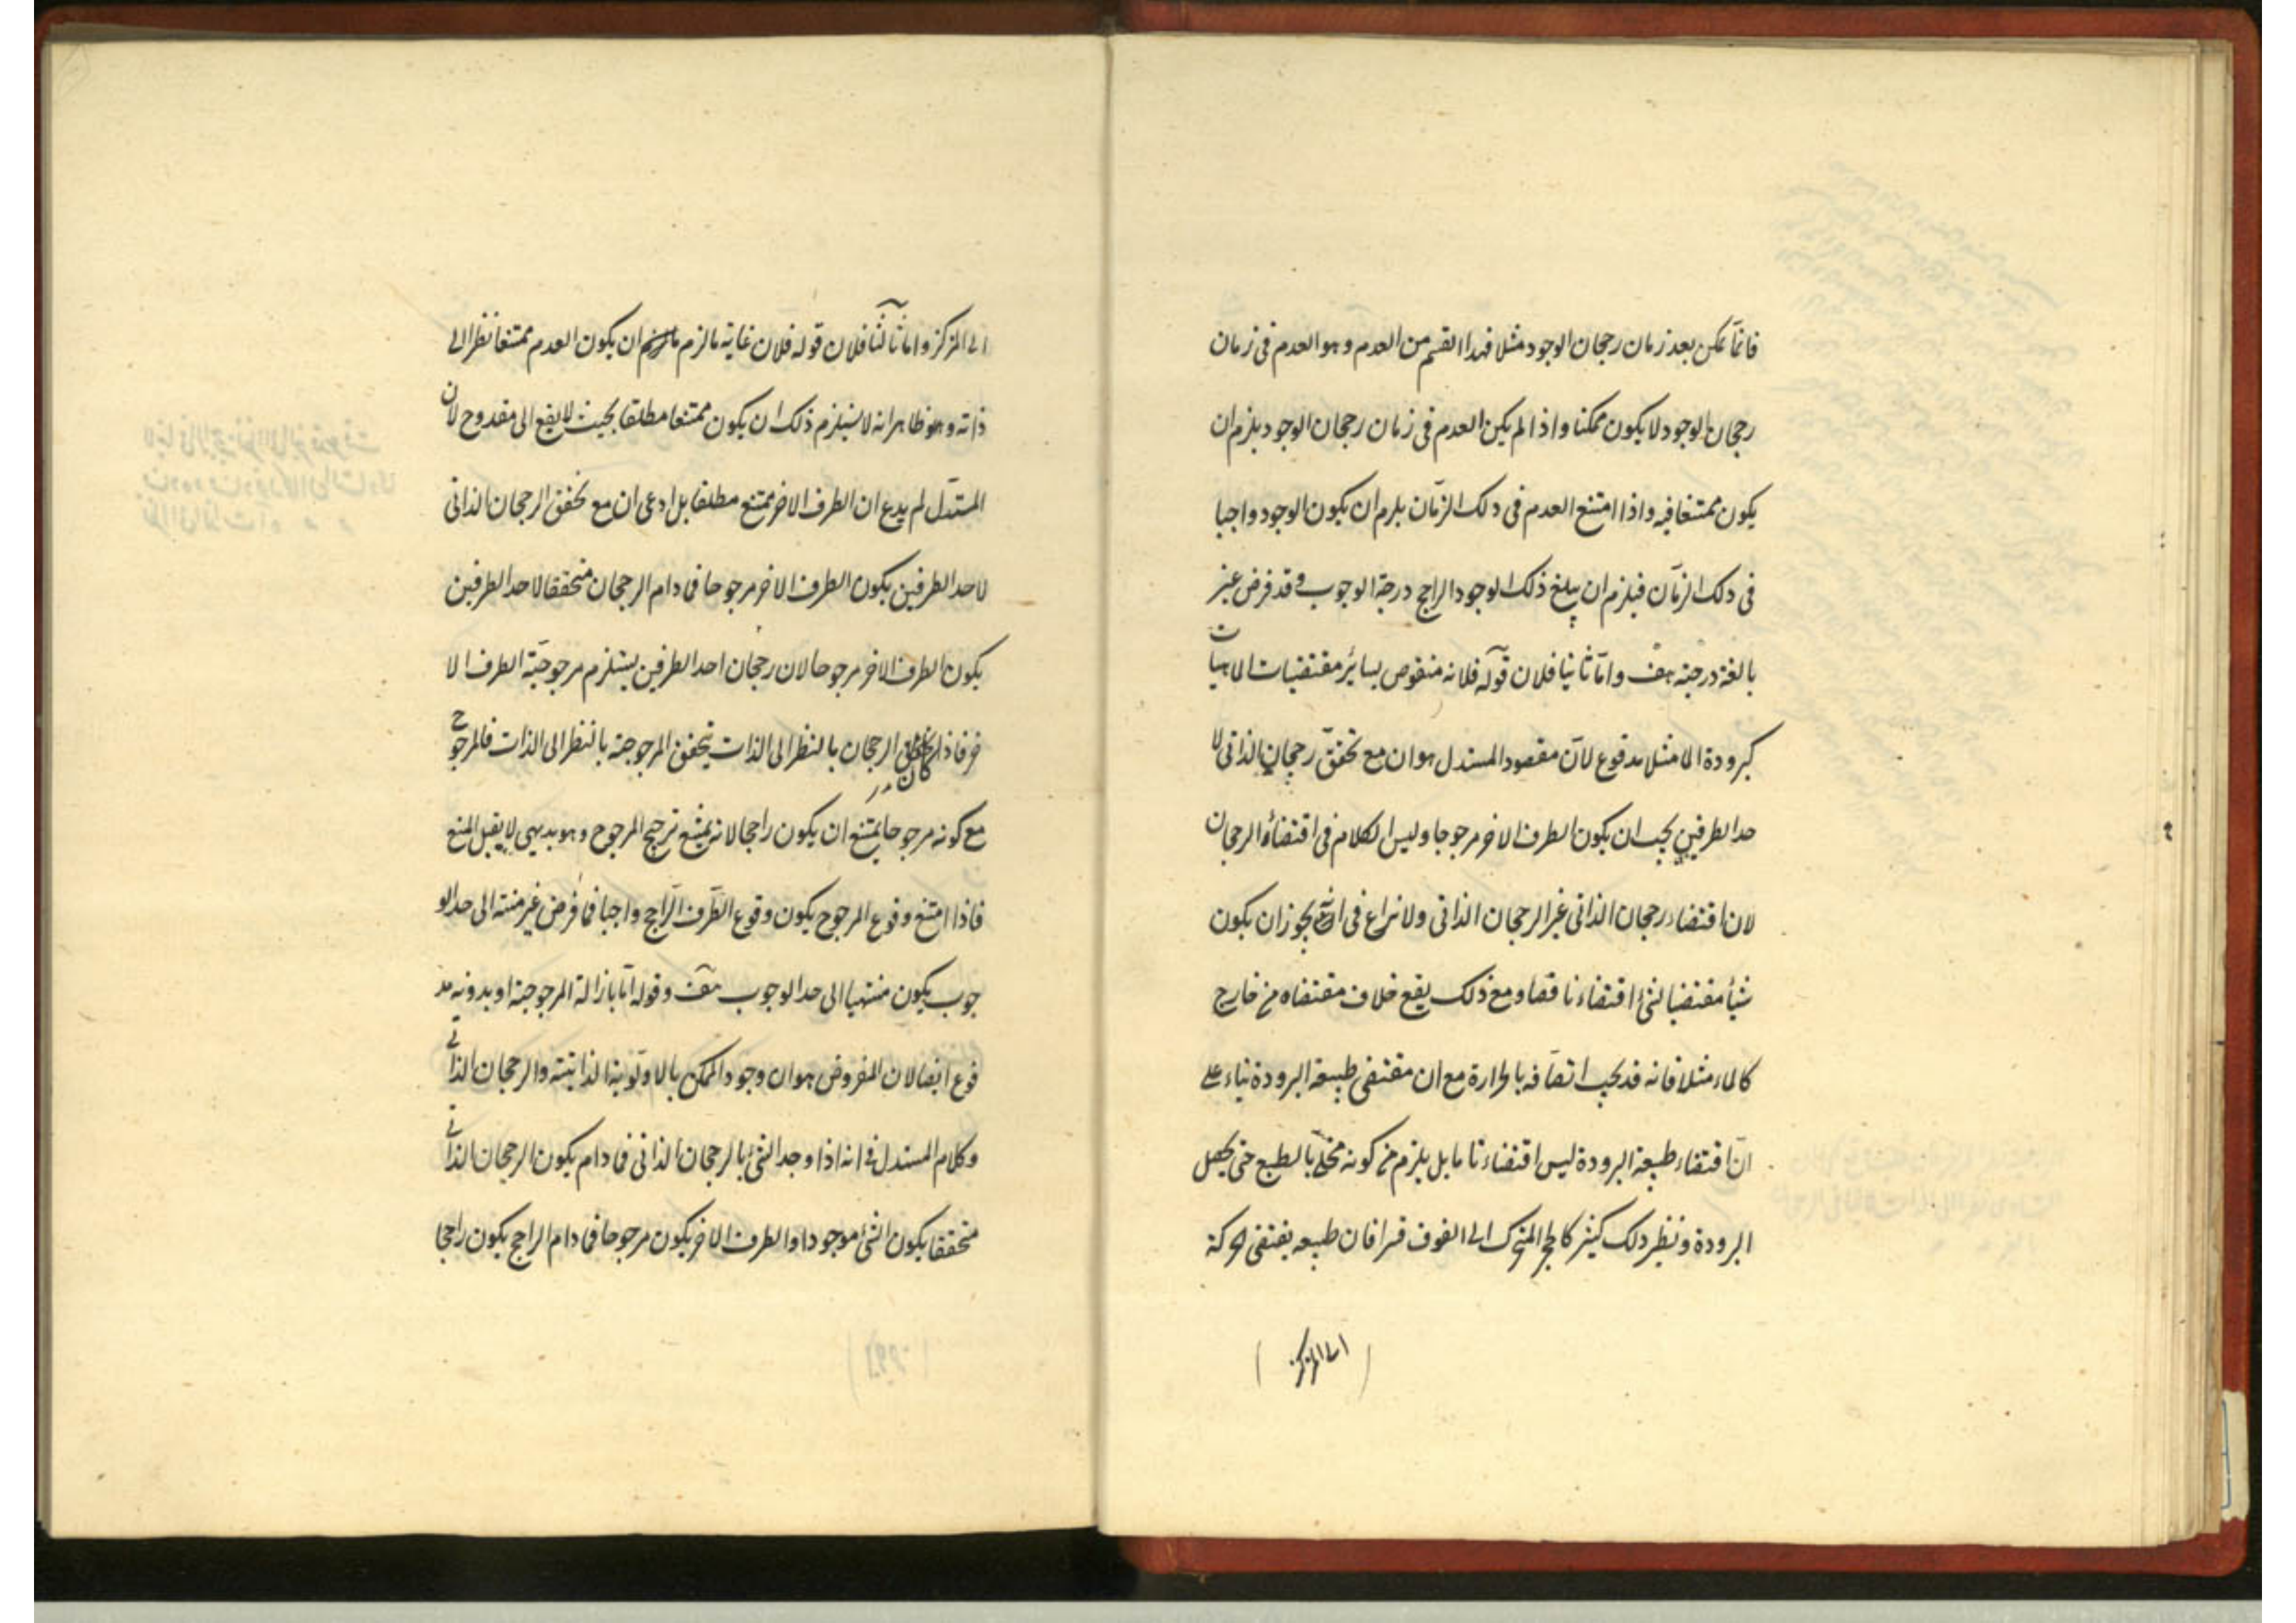 فانما يمكن بعد زمان رجحان الوجود مثلا فهذا القسم من العدم وهو العدم فى زمان
رجحان الوجود لا يكون ممكنا واذا لم يكن العدم فى زمان رجحان الوجود يلزم ان
يكون ممتنعا فيه واذا امتنع العدم فى ذلك الزمان يلزم ان يكون الوجود واجبا
فى ذلك الزمان فيلزم ان يبلغ ذلك الوجود الراجح درجة الوجوب وقد فرض غير
بالغة درجته هف واما ثانيا فلان قوله فلانه منقوص بسائر مقتضيات الماهيات
كبرودة الماء مثلا مدفوع لان مقصود المستدل هو ان مع تحقق رجحان الذاتى لا
حد الطرفين يجب ان يكون الطرف الاخر مرجوحا وليس الكلام فى اقتضاء الرجحان
لان اقتضاء رجحان الذاتى غير الرجحان الذاتى ولا نزاع فى يجوز ان يكون
شيأ مقتضيا لشئ اقتضاء ناقصا ومع ذلك يقع خلاف مقتضاه من خارج
كالماء مثلا فانه قد يجب اتصافه بالحرارة مع ان مقتضى طبيعة البرودة بناء على
ان اقتضاء طبيعة البرودة ليس اقتضاء تاما بل يلزم من كونه مخلى بالطبع حتى يحصل
البرودة ونظير ذلك كثير كالحجر المتحرك الى الفوق قسرا فان طبيعه يقتضى الحركة
الى المركز
الى المركز واما ثالثا فلان قوله فلان غاية ما لزم ان يكون العدم ممتنعا نظرا الى
ذاته وهو ظاهر انه لا يستلزم ذلك ان يكون ممتنعا مطلقا بحيث لا يقع الى مقدوح لان
المستدل لم يدع ان الطرف الاخر ممتنع مطلقا بل ادعى ان مع تحقق الرجحان الذاتى
لاحد الطرفين يكون الطرف الاخر مرجوحا فما دام الرجحان متحققا لاحد الطرفين
يكون الطرف الاخر مرجوحا لان رجحان احد الطرفين يستلزم مرجوحية الطرف الا
خر فاذا كان الرجحان بالنظر الى الذات يتحقق المرجوحية بالنظر الى الذات فالمرجوح
مع كونه مرجوحا يمتنع ان يكون راجحا لانه يمتنع ترجيح المرجوح وهو بديهى لا يقبل المنع
فاذا امتنع وقوع المرجوح يكون وقوع الطرف الراجح واجبا فما فرض غير منته الى حد الو
جوب يكون منتهيا الى حد الوجوب هف وقوله اما بازالة المرجوحية او بدونه مد
فوع ايضا لان المفروض هو ان وجود الممكن بالاولوية الذاتية والرجحان الذاتى
وكلام المستدل فى انه اذا وجد الشئ بالرجحان الذاتى فما دام يكون الرجحان الذاتى
متحققا يكون الشئ موجودا والطرف الاخر يكون مرجوحا فما دام الراجح يكون راجحا